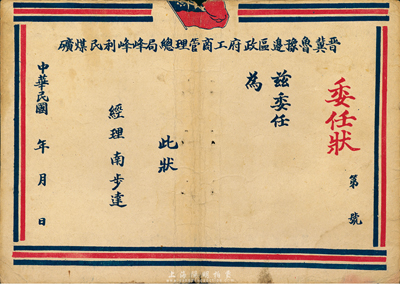 晋冀魯豫邊區政府工商管理總局峰峰利民煤礦
委任狀
第　號
茲委任
為
此狀
經理 南步達
中華民國　年　月　日